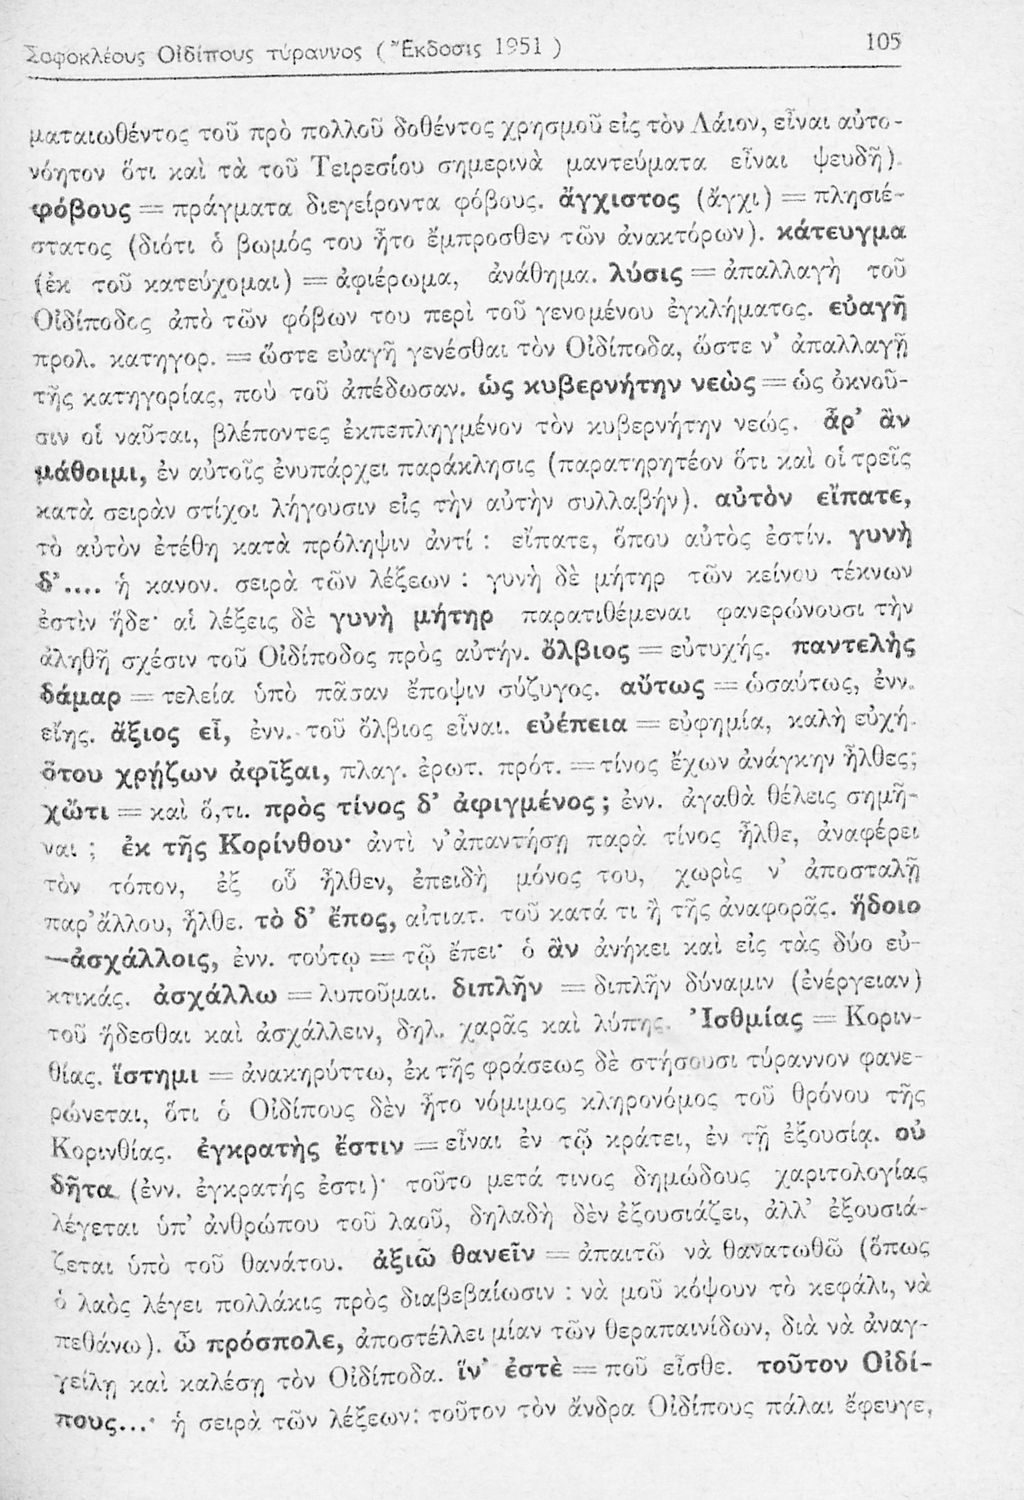 Σοφοκλέους Οἰδίπους τύραννος ( Ἔκδοσις 1951 ) 105
ματαιωθέντος τοῦ πρὸ πολλοῦ δοθέντος χρησμοῦ εἰς τὸν Λάιον, εἶναι αὐτο-
νόητον ὅτι καὶ τὰ τοῦ Τειρεσίου σημερινὰ μαντεύματα εἶναι ψευδῆ).
φόβους = πράγματα διεγείροντα φόβους. ἄγχιστος (ἄγχι) = πλησιέ-
στατος (διότι ὁ βωμός του ἦτο ἔμπροσθεν τῶν ἀνακτόρων). κάτευγμα
(ἐκ τοῦ κατεύχομαι) = ἀφιέρωμα, ἀνάθημα. λύσις = ἀπαλλαγὴ τοῦ
Οἰδίποδος ἀπὸ τῶν φόβων του περὶ τοῦ γενομένου ἐγκλήματος. εὐαγῆ
προλ. κατηγορ. = ὥστε εὐαγῆ γενέσθαι τὸν Οἰδίποδα, ὥστε ν' ἀπαλλαγῇ
τῆς κατηγορίας, ποὺ τοῦ ἀπέδωσαν. ὡς κυβερνήτην νεὼς = ὡς ὀκνοῦ-
σιν οἱ ναῦται, βλέποντες ἐκπεπληγμένον τὸν κυβερνήτην νεώς. ἆρ' ἂν
μάθοιμι, ἐν αὐτοῖς ἐνυπάρχει παράκλησις (παρατηρητέον ὅτι καὶ οἱ τρεῖς
κατὰ σειρὰν στίχοι λήγουσιν εἰς τὴν αὐτὴν συλλαβήν). αὐτὸν εἴπατε,
τὸ αὐτὸν ἐτέθη κατὰ πρόληψιν ἀντί : εἴπατε, ὅπου αὐτὸς ἐστίν. γυνὴ
δ'.... ἡ κανον. σειρὰ τῶν λέξεων : γυνὴ δὲ μήτηρ τῶν κείνου τέκνων
ἐστὶν ἥδε· αἱ λέξεις δὲ γυνὴ μήτηρ παρατιθέμεναι φανερώνουσι τὴν
ἀληθῆ σχέσιν τοῦ Οἰδίποδος πρὸς αὐτήν. ὄλβιος = εὐτυχής. παντελὴς
δάμαρ = τελεία ὑπὸ πᾶσαν ἔποψιν σύζυγος. αὔτως = ὡσαύτως, ἐνν.
εἴης. ἄξιος εἶ, ἐνν. τοῦ ὄλβιος εἶναι. εὐέπεια = εὐφημία, καλὴ εὐχή.
ὅτου χρῄζων ἀφῖξαι, πλαγ. ἐρωτ. πρότ. = τίνος ἔχων ἀνάγκην ἦλθες;
χὤτι = καὶ ὅ,τι. πρὸς τίνος δ' ἀφιγμένος ; ἐνν. ἀγαθὰ θέλεις σημῆ-
ναι ; ἐκ τῆς Κορίνθου· ἀντὶ ν' ἀπαντήσῃ παρὰ τίνος ἦλθε, ἀναφέρει
τὸν τόπον, ἐξ οὗ ἦλθεν, ἐπειδὴ μόνος του, χωρὶς ν' ἀποσταλῇ
παρ' ἄλλου, ἦλθε. τὸ δ' ἔπος, αἰτιατ. τοῦ κατά τι ἢ τῆς ἀναφορᾶς. ἥδοιο
—ἀσχάλλοις, ἐνν. τούτῳ = τῷ ἔπει· ὁ ἂν ἀνήκει καὶ εἰς τὰς δύο εὐ-
κτικάς. ἀσχάλλω = λυποῦμαι. διπλῆν = διπλῆν δύναμιν (ἐνέργειαν)
τοῦ ἥδεσθαι καὶ ἀσχάλλειν, δηλ. χαρᾶς καὶ λύπης. Ἰσθμίας = Κοριν-
θίας. ἵστημι = ἀνακηρύττω, ἐκ τῆς φράσεως δὲ στήσουσι τύραννον φανε-
ρώνεται, ὅτι ὁ Οἰδίπους δὲν ἦτο νόμιμος κληρονόμος τοῦ θρόνου τῆς
Κορινθίας. ἐγκρατὴς ἔστιν = εἶναι ἐν τῷ κράτει, ἐν τῇ ἐξουσίᾳ. οὐ
δῆτα (ἐνν. ἐγκρατής ἐστι)· τοῦτο μετά τινος δημώδους χαριτολογίας
λέγεται ὑπ' ἀνθρώπου τοῦ λαοῦ, δηλαδὴ δὲν ἐξουσιάζει, ἀλλ' ἐξουσιά-
ζεται ὑπὸ τοῦ θανάτου. ἀξιῶ θανεῖν = ἀπαιτῶ νὰ θανατωθῶ (ὅπως
ὁ λαὸς λέγει πολλάκις πρὸς διαβεβαίωσιν : νὰ μοῦ κόψουν τὸ κεφάλι, νὰ
πεθάνω). ὦ πρόσπολε, ἀποστέλλει μίαν τῶν θεραπαινίδων, διὰ νὰ ἀναγ-
γείλῃ καὶ καλέσῃ τὸν Οἰδίποδα. ἵν' ἐστὲ = ποῦ εἶσθε. τοῦτον Οἰδί-
πους...· ἡ σειρὰ τῶν λέξεων: τοῦτον τὸν ἄνδρα Οἰδίπους πάλαι ἔφευγε,